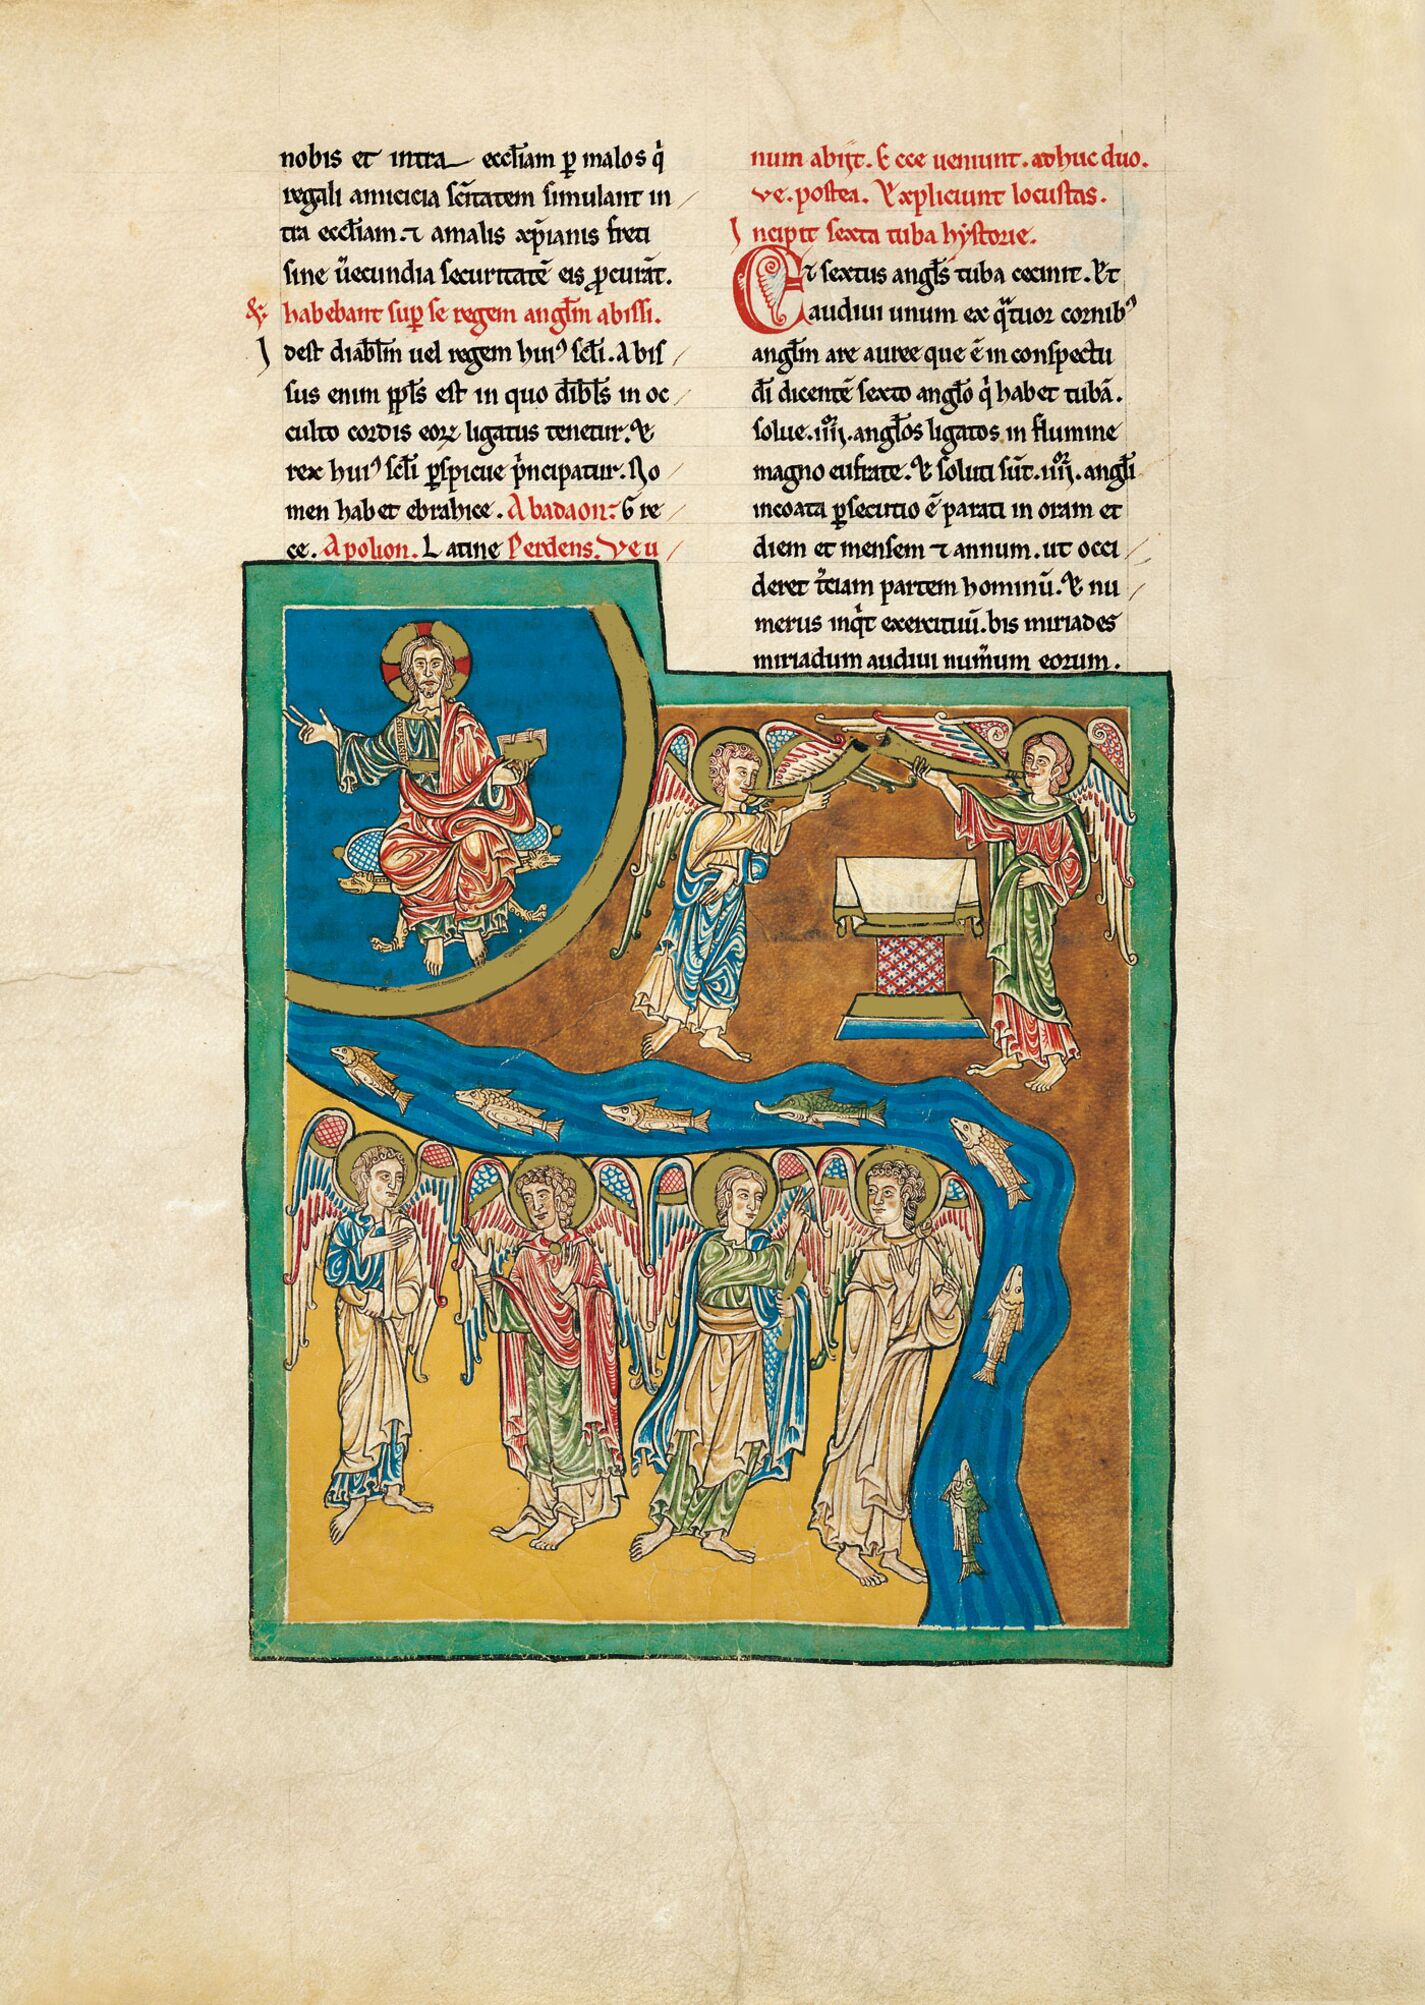 nobis et intra eccl̄iam p̱ malos qͥ
regali amicicia sc̄itatem simulant in
tra eccl̄iam. ⁊ amalis xp̄ianis freti
sine ūecundia securitatē eis ꝓcurāt.
&. habebant suꝑ se regem angl̄m abissi.
Idest diabl̄m uel regem huiꝰ scl̄i. Abis
sus enim ppl̄s est in quo dībl̄s in oc
culto cordis eoꝝ ligatus tenetur. Et
rex huiꝰ scl̄i ꝑspicue pͥncipatur. No
men habet ebrahice. Abadaon: Gre
ce. Apolion. Latine Perdens. Ve u
num abijt. Ecce ueniunt. adhuc duo.
ve. postea. Expliciunt locustas.
Incipit sexta tuba hystorie.
Et sextus angl̄s tuba cecinit. Et
audiui unum ex qͣtuor cornibꝰ
angl̄m are auree que ē in conspectu
dī dicentē sexto angl̄o qͥ habet tubā.
solue .iiiiᵒʳ. angl̄os ligatos in flumine
magno eufrate. Et soluti sūt .iiiiᵒʳ. angl̄i
incoata ꝑsecutio ē parati in oram et
diem et mensem ⁊ annum. ut occi
deret t̄ciam partem hominū. Et nu
merus inqͥt exercituū. bis miriades
miriadum audiui num̄um eorum.